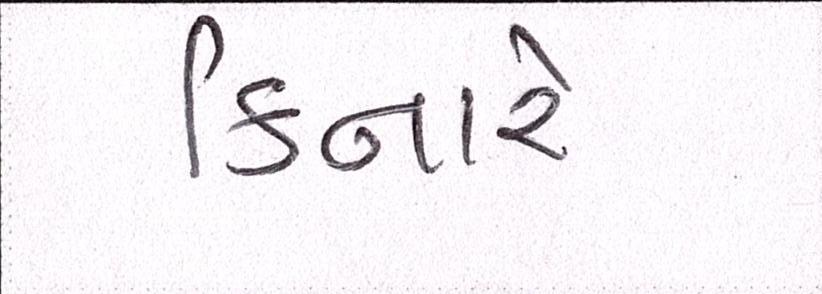 કિનારે